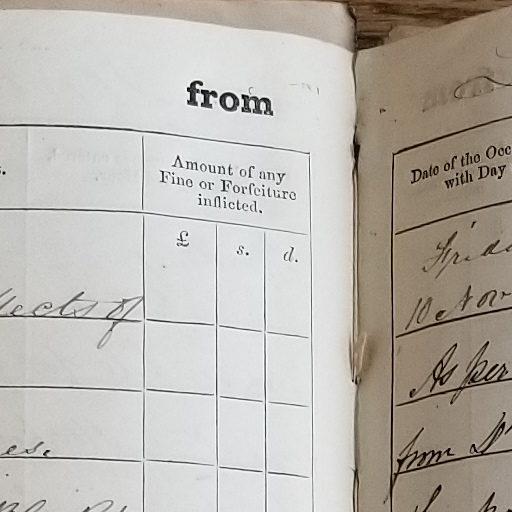 from
Amount of any
Fine or Forfeiture
inflicted.
£ s. d.
of
Date of the Occ
with Day
Frida
10 Nov
As per
from Dr